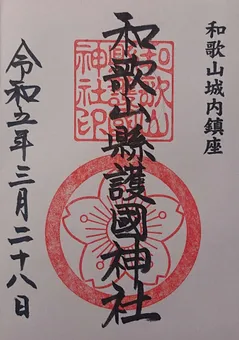 和歌山城内鎮座
和歌山縣護國神社
和歌山
縣護國
神社印
令和五年三月二十八日